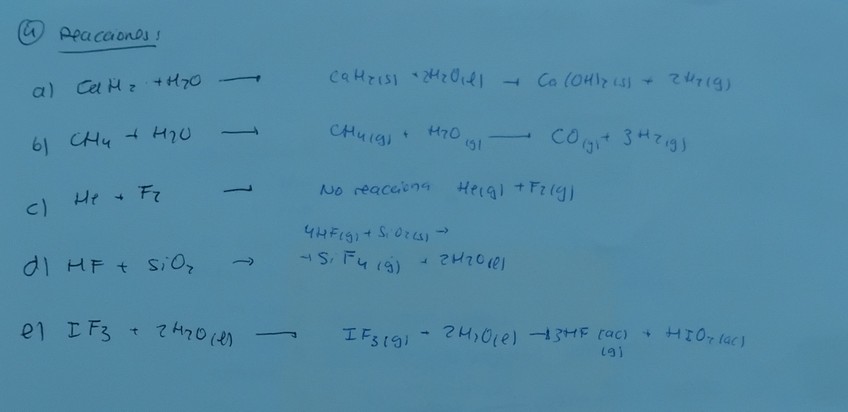 ④ Reacciones:
a) CaH2 + H2O → CaH2(s) + 2H2O(l) → Ca(OH)2(s) + 2H2(g)
b) CH4 + H2O → CH4(g) + H2O(g) → CO(g) + 3H2(g)
c) He + F2 → No reacciona He(g) + F2(g)
4HF(g) + SiO2(s) →
d) HF + SiO2 → → SiF4(g) + 2H2O(l)
e) IF3 + 2H2O(l) → IF3(g) + 2H2O(l) → 3HF(ac) + HIO2(ac)
(g)